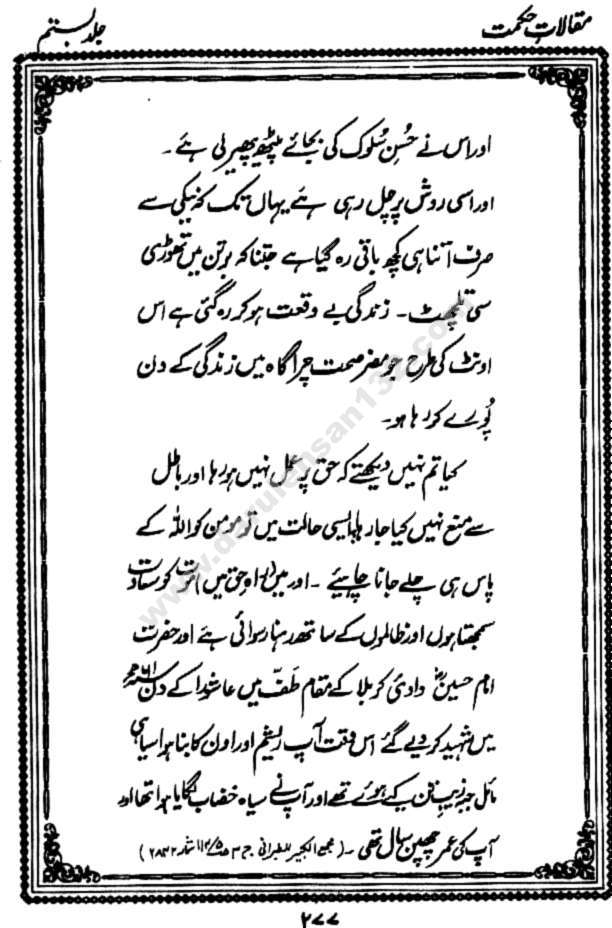 مقالاتِ حکمت
جلد بستم
اور اس نے حُسنِ سُلوک کی بجائے پیٹھ پھیر لی ہے ۔
اور اسی روش پر چل رہی ہے یہاں تک کہ نیکی سے
صرف اتنا ہی کچھ باقی رہ گیا ہے جتنا کہ برتن میں تھوڑی
سی تلچھٹ ۔ زندگی بے وقعت ہو کر رہ گئی ہے اس
اونٹ کی طرح جو مضر صحت چراگاہ میں زندگی کے دن
پُورے کر رہا ہو۔
کیا تم نہیں دیکھتے کہ حق پر عمل نہیں ہو رہا اور باطل
سے منع نہیں کیا جا رہا ایسی حالت میں تو مومن کو اللہ کے
پاس ہی چلے جانا چاہیئے ۔ اور میں راہِ حق میں موت کو سعادت
سمجھتا ہوں اور ظالموں کے ساتھ رہنا رسوائی ہے اور حضرت
امام حسینؓ وادیٔ کربلا کے مقام طَفّ میں عاشورا کے دن ۶۱ھ
میں شہید کر دیے گئے اس وقت آپ ریشم اور اون کا بنا ہوا سیاہی
مائل جبہ زیب تن کیے ہوئے تھے اور آپ نے سیاہ خضاب لگایا ہوا تھا اور
آپ کی عمر چھپن سال تھی ۔ ( معجم الکبیر للطبرانی ج ۳ ۲۸۴۲ )
۲۷۷
www.darulehsan